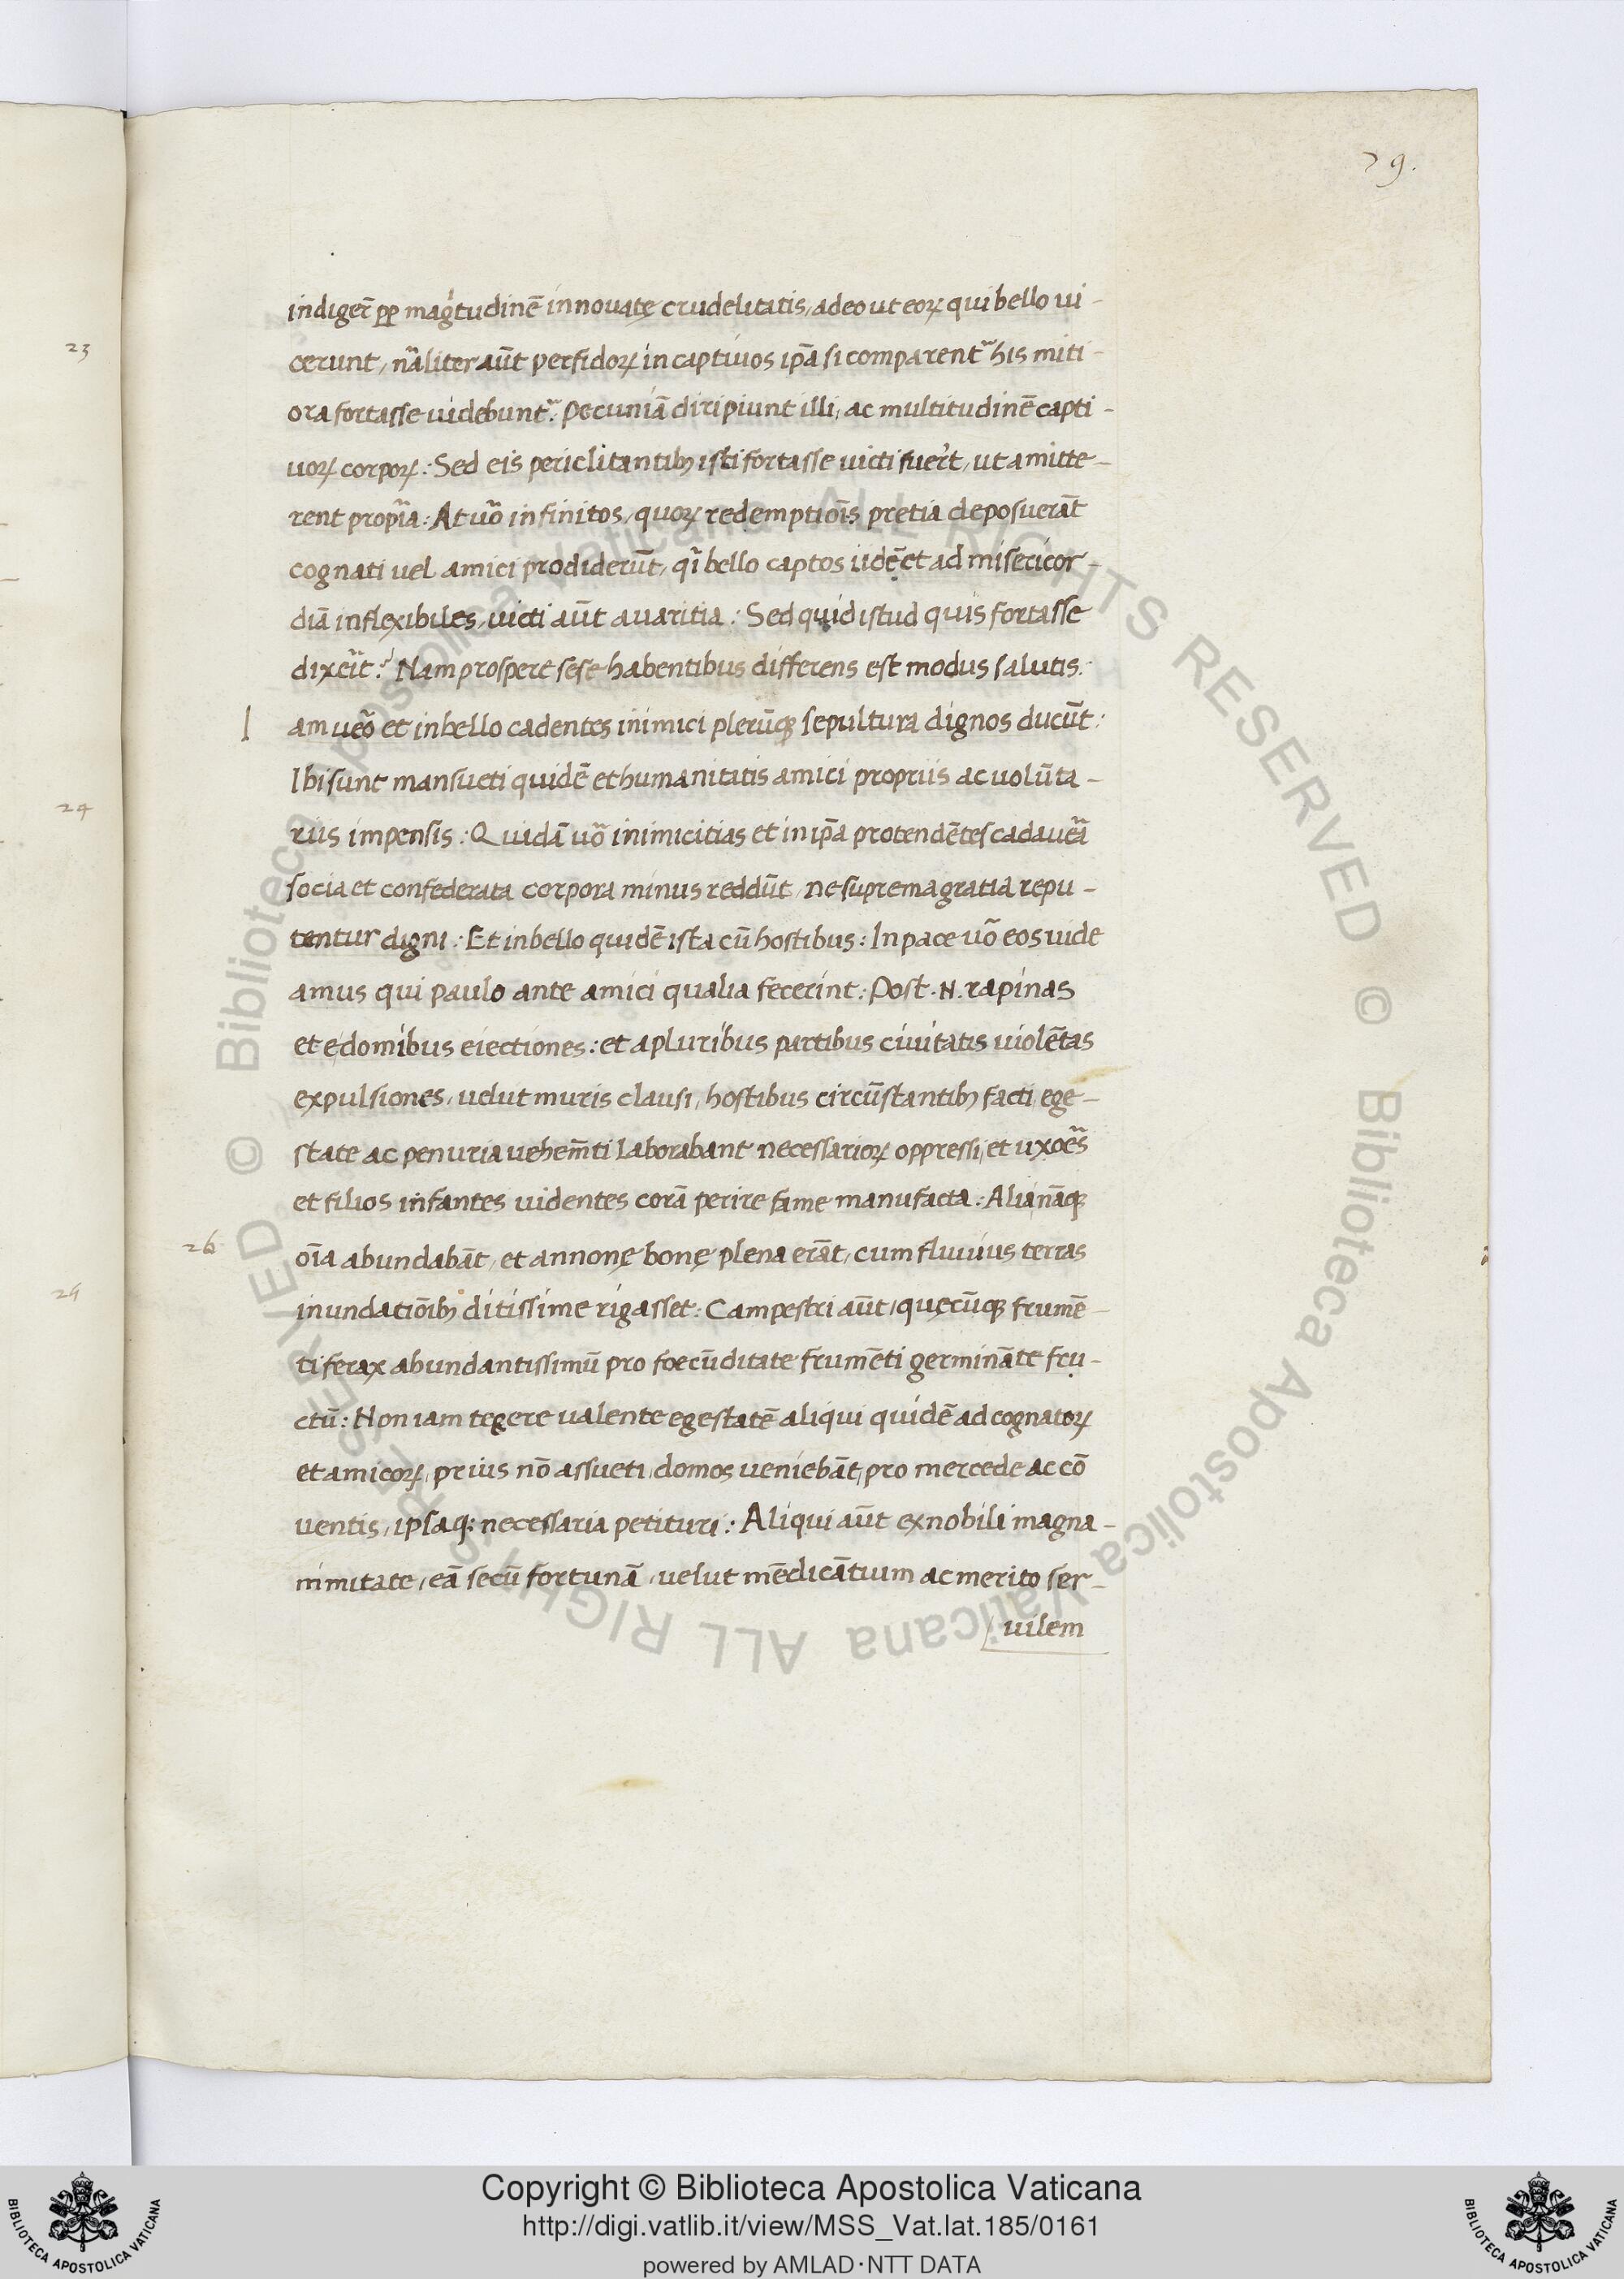 79.
indigerẽ ꝓp magᷓtudinẽ innouatę crudelitatis, adeo ut eoꝝ qui bello ui-
cerunt, nãliter aũt perfidoꝝ in captiuos ip̃a si comparentᷣ his miti-
ora fortasse uidebuntᷣ. Pecuniã diripiunt illi, ac multitudinẽ capti-
uoꝝ corpoꝝ: Sed eis periclitantibꝫ isti fortasse uicti fuer̃t, ut amitte-
rent prop̃ia: At uõ infinitos, quoꝝ redemptiõis pretia deposuerãt
cognati uel amici prodiderũt, qͥ bello captos iidẽ et ad misericor-
diã inflexibiles, uicti aũt auaritia: Sed quid istud quis fortasse
dixeĩt? Nam prospere sese habentibus differens est modus salutis:
I am ueõ et in bello cadentes inimici plerũqꝫ sepultura dignos ducũt:
Ibi sunt mansueti quidẽ et humanitatis amici propriis ac uolũta-
riis impensis: Quidã uõ inimicitias et in ip̃a protendẽtes cadauẽa
socia et confederata corpora minus reddũt, ne suprema gratia repu-
tentur digni: Et in bello quidẽ ista cũ hostibus: In pace uõ eos uide
amus qui paulo ante amici qualia fecerint: Post .N. rapinas
et e domibus eiectiones: et a pluribus partibus ciuitatis uiolẽtas
expulsiones, uelut muris clausi, hostibus circũstantibꝫ facti, ege-
state ac penuria uehem̃ti laborabant necessarioꝝ oppressi, et uxoẽs
26 et filios infantes uidentes corã perire fame manufacta: Alia nãqꝫ
oĩa abundabãt, et annonę bonę plena erãt, cum fluuius terras
inundatiõibꝫ ditissime rigasset: Campestri aũt, quęcũqꝫ frumẽ-
ti ferax abundantissimũ pro foecũditate frumẽti germinãte fru-
ctũ: Non iam tegere ualente egestatẽ aliqui quidẽ ad cognatoꝝ
et amicoꝝ, prius nõ assueti, domos ueniebãt, pro mercede ac cõ
uentis, ipsaqꝫ necessaria petituri: Aliqui aũt ex nobili magna-
nimitate, eã secũ fortunã, uelut mẽdicãtium ac merito ser-
uilem
23
24
25
© Biblioteca Apostolica Vaticana ALL RIGHTS RESERVED © Biblioteca Apostolica Vaticana ALL RIGHTS RESERVED
Copyright © Biblioteca Apostolica Vaticana
http://digi.vatlib.it/view/MSS_Vat.lat.185/0161
powered by AMLAD·NTT DATA
BIBLIOTECA APOSTOLICA VATICANA
BIBLIOTECA APOSTOLICA VATICANA